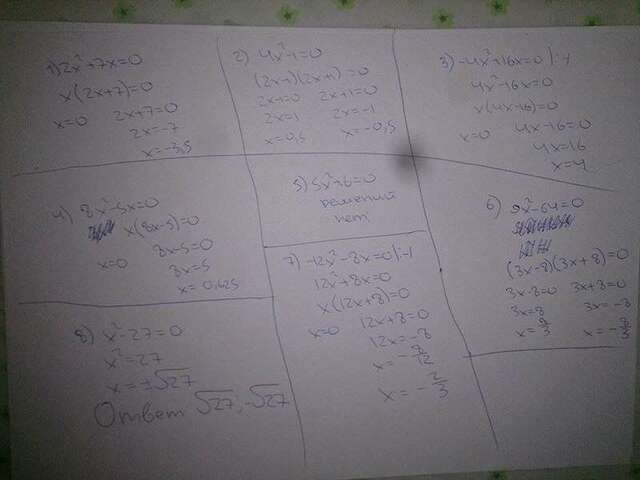 1) 2x²+7x=0
x(2x+7)=0
x=0 2x+7=0
2x=-7
x=-3,5
2) 4x²-1=0
(2x-1)(2x+1)=0
2x-1=0 2x+1=0
2x=1 2x=-1
x=0,5 x=-0,5
3) -4x²+16x=0 |:-1
4x²-16x=0
x(4x-16)=0
x=0 4x-16=0
4x=16
x=4
4) 8x²-5x=0
x(8x-5)=0
x=0 8x-5=0
8x=5
x=0,625
5) 5x²+6=0
решений
нет
6) 9x²-64=0
(3x-8)(3x+8)=0
3x-8=0 3x+8=0
3x=8 3x=-8
x=8/3 x=-8/3
7) -12x²-8x=0 |:-1
12x²+8x=0
x(12x+8)=0
x=0 12x+8=0
12x=-8
x=-8/12
x=-2/3
8) x²-27=0
x²=27
x=±√27
Ответ √27; -√27